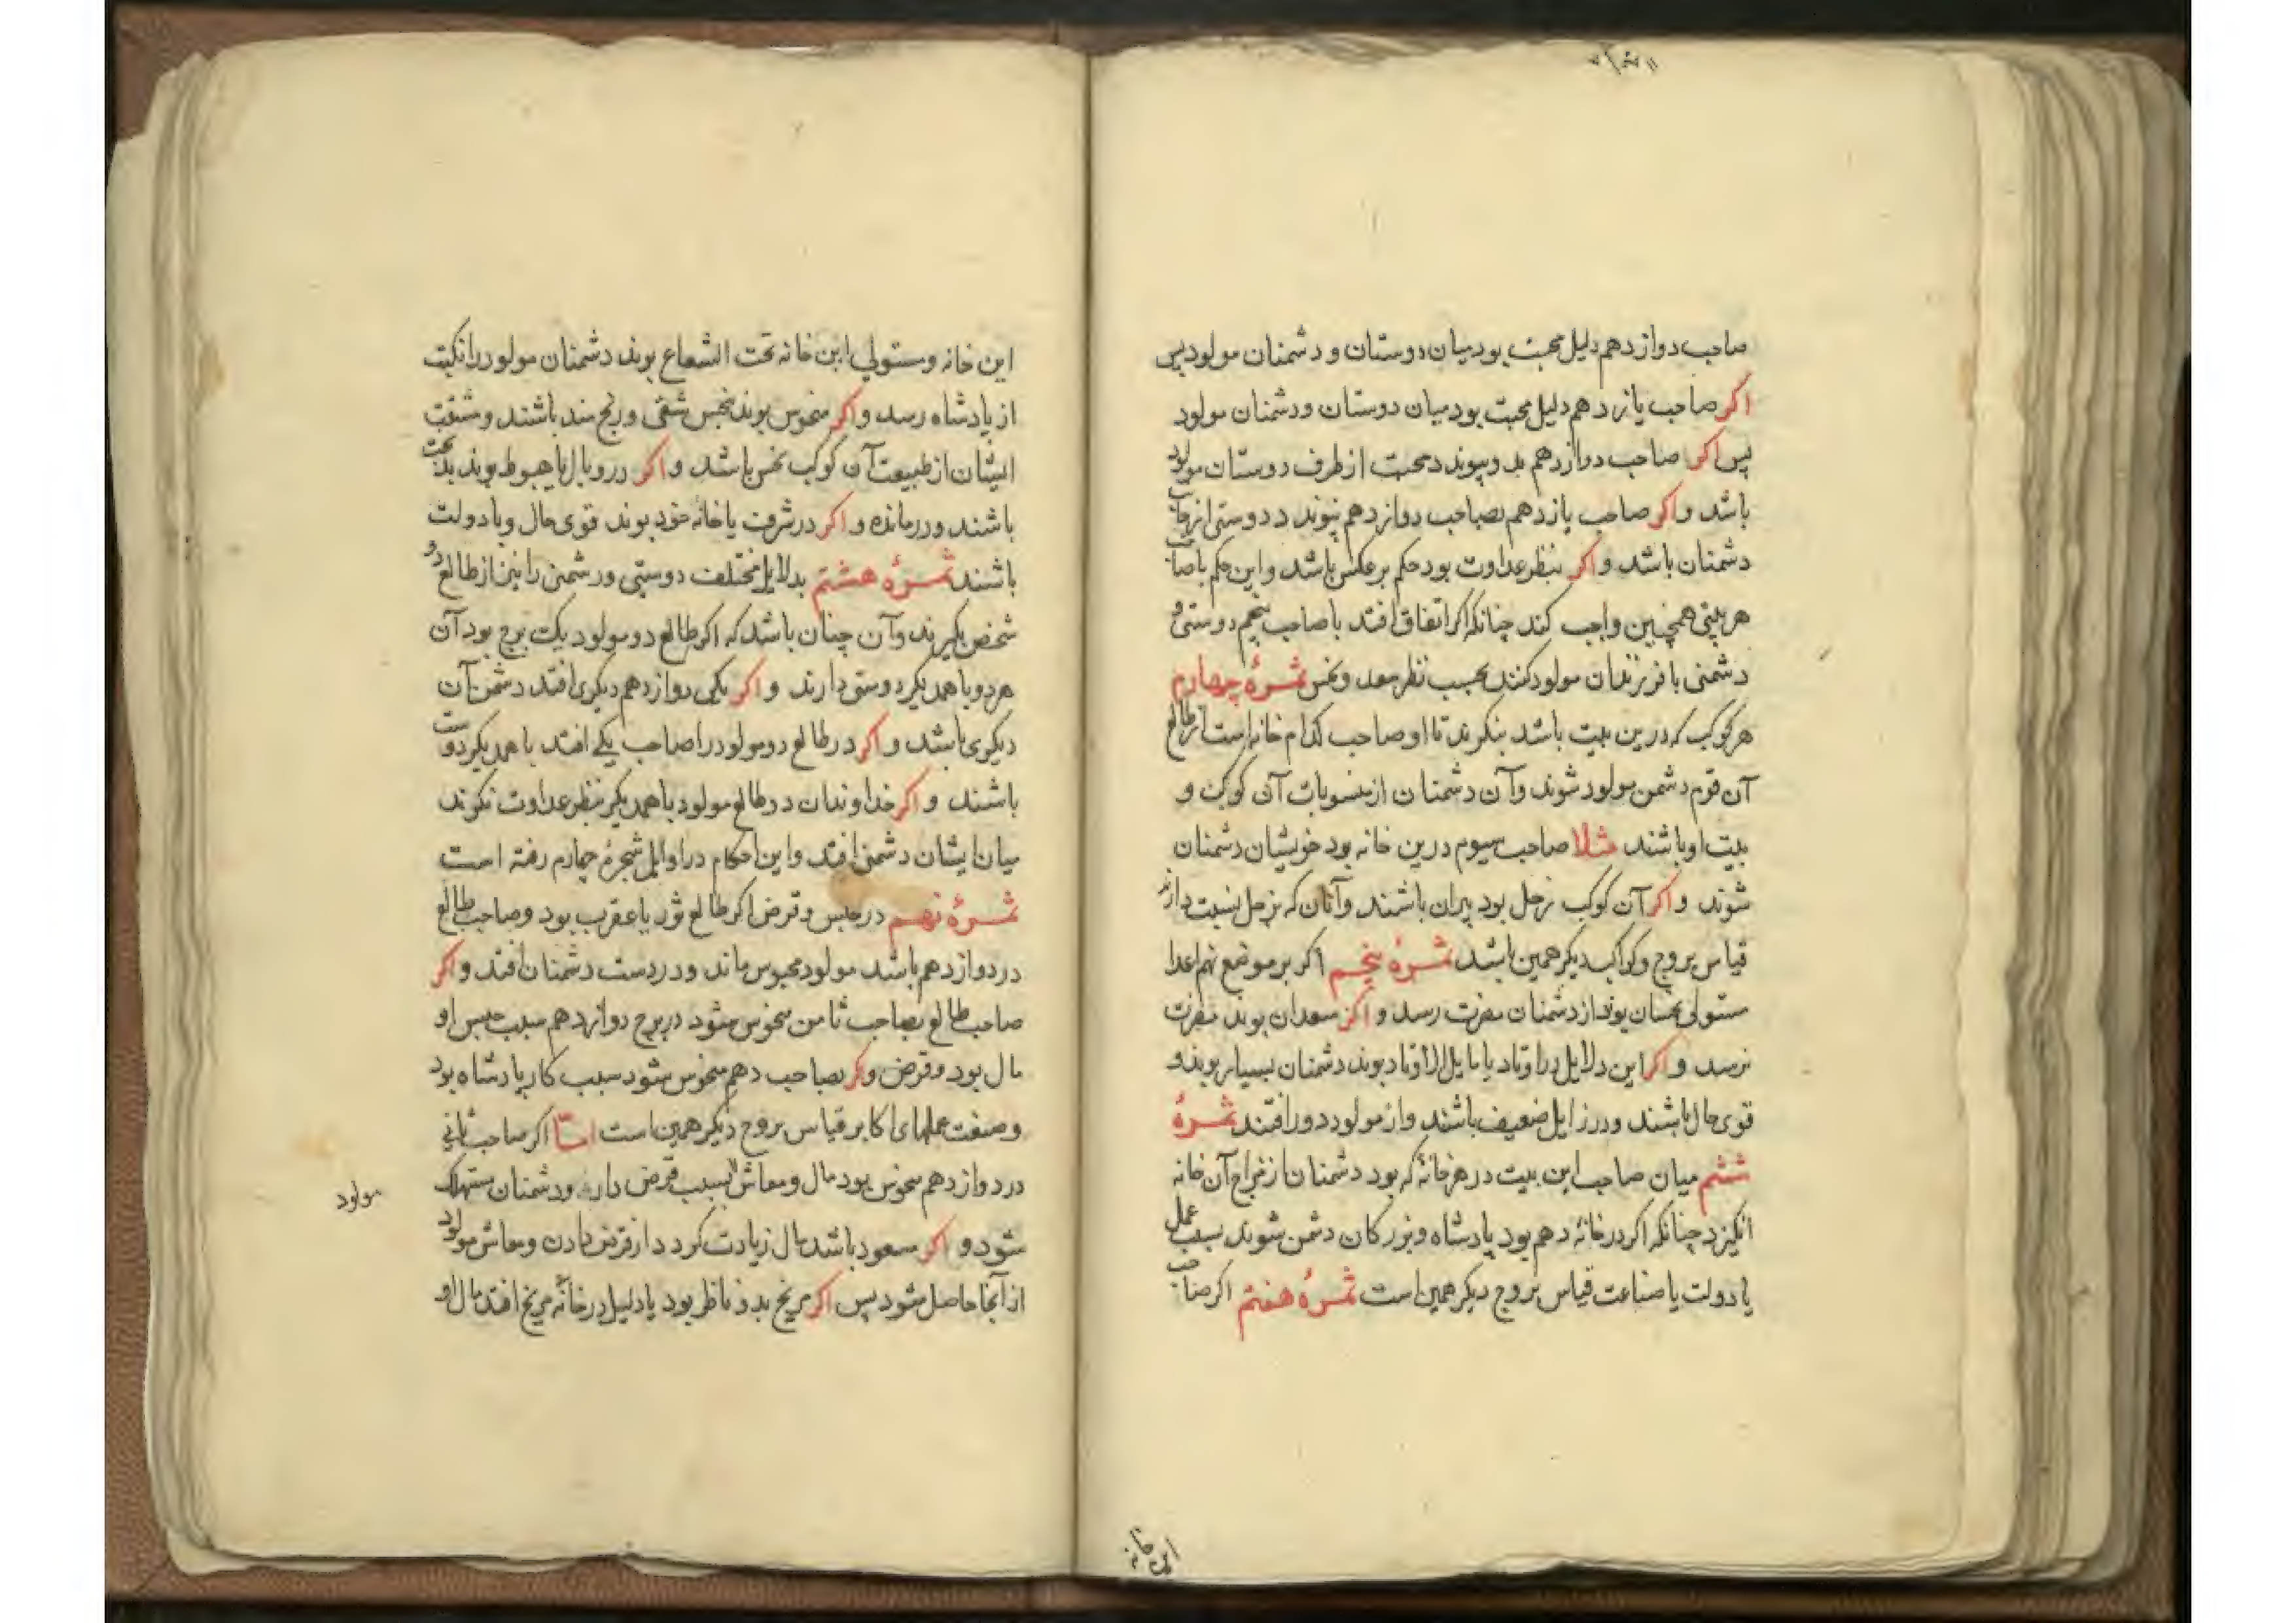 صاحب دوازدهم دلیل محبت بود میان دوستان و دشمنان مولود پس
اکر صاحب یازدهم دلیل محبت بود میان دوستان و دشمنان مولود
پس اکر صاحب دوازدهم بدو پیوندد محبت از طرف دوستان مولود
باشد و اکر صاحب یازدهم بصاحب دوازدهم پیوندد دوستی از جانب
دشمنان باشد و اکر بنظر عداوت بود حکم برعکس باشد و این حکم با صاحب
هر بیتی همچنین واجب کند چنانکه اکر اتفاق افتد با صاحب پنجم دوستی و
دشمنی با فرزندان مولود کنند بحسب نظر سعد و نحس ثمرهٔ چهارم
هر کوکب که درین بیت باشد بنکرند تا او صاحب کدام خانه است از طالع
آن قوم دشمن مولود شوند و آن دشمنان از منسوبات آن کوکب و
بیت او باشند مثلا صاحب سیوم درین خانه بود خویشان دشمنان
شوند و اکر آن کوکب زحل بود پیران باشند و آنان که بزحل نسبت دارند
قیاس بروج و کواکب دیکر همین باشد ثمرهٔ پنجم اکر بر موضع سهم اعدا
مستولی نحسان بوند از دشمنان مضرت رسد و اکر سعدان بوند مضرت
نرسد و اکر این دلایل در اوتاد یا مایل الاوتاد بوند دشمنان بسیار بوند و
قوی حال باشند و در زایل ضعیف باشند و از مولود دور افتند ثمرهٔ
ششم میان صاحب این بیت در هر خانهٔ که بود دشمنان از مزاج آن خانه
انکیزد چنانکه اکر در خانهٔ دهم بود پادشاه و بزرکان دشمن شوند بسبب عمل
یا دولت یا صناعت قیاس بروج دیکر همین است ثمرهٔ هفتم اکر صاحب
این خانه
این خانه و مستولی این خانه تحت الشعاع بوند دشمنان مولود را نکبت
از پادشاه رسد و اکر منحوس بوند بنحس شقی و رنج مند باشند و مشقت
ایشان از طبیعت آن کوکب نحس باشد و اکر در وبال یا هبوط بوند بدبخت
باشند و درمانده و اکر در شرف یا خانهٔ خود بوند قوی حال و با دولت
باشند ثمرهٔ هشتم بدلایل مختلف دوستی و دشمنی را نیز از طالع دو
شخص بکیرند و آن چنان باشد که اکر طالع دو مولود یک برج بود آن
هر دو با همدیکر دوستی دارند و اکر یکی دوازدهم دیکری افتد دشمن آن
دیکری باشد و اکر در طالع دو مولود را صاحب یکی افتد با همدیکر دوست
باشند و اکر خداوندان دو طالع مولود با همدیکر بنظر عداوت نکرند
میان ایشان دشمنی افتد و این احکام در اوایل شجرهٔ چهارم رفته است
ثمرهٔ نهم در حبس و قرض اکر طالع ثور یا عقرب بود و صاحب طالع
در دوازدهم باشد مولود محبوس ماند و در دست دشمنان افتد و اکر
صاحب طالع بصاحب ثامن منحوس شود در برج دوازدهم سبب حبس او
مال بود و قرض و اکر بصاحب دهم منحوس شود سبب کار پادشاه بود
و صنعت عملهای اکابر قیاس بروج دیکر همین است امّا اکر صاحب ثانی
در دوازدهم منحوس بود مال و معاش بسبب قرض دارد و دشمنان مستهلک
شود و اکر مسعود باشد مال زیادت کردد از قرض دادن و معاش مولود
از آنجا حاصل شود پس اکر مریخ بدو ناظر بود یا دلیل در خانهٔ مریخ افتد مال او
مولود